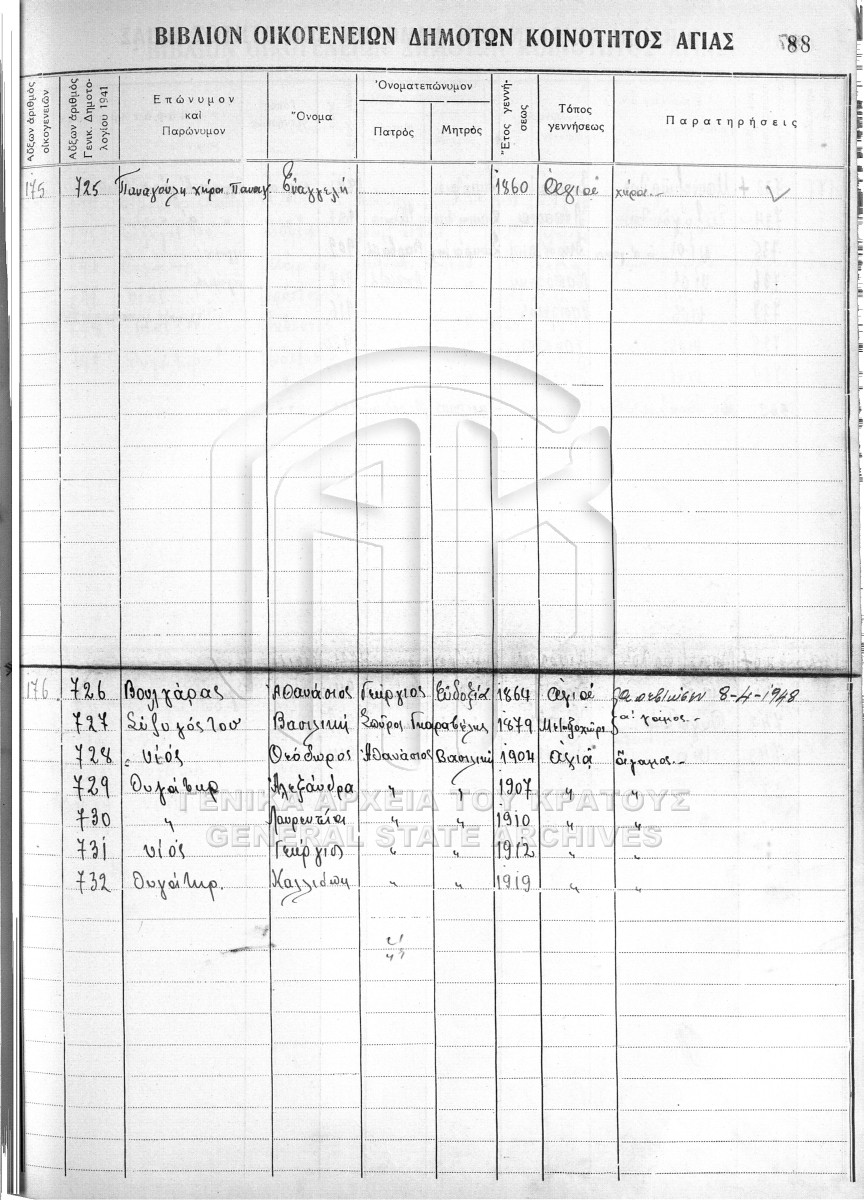 ΒΙΒΛΙΟΝ ΟΙΚΟΓΕΝΕΙΩΝ ΔΗΜΟΤΩΝ ΚΟΙΝΟΤΗΤΟΣ ΑΓΙΑΣ 88
Αὔξων ἀριθμὸς οἰκογενειῶν
Αὔξων ἀριθμὸς Γενικ. Δημοτολογίου 1941
Ἐπώνυμον καὶ Παρώνυμον
Ὄνομα
Ὀνοματεπώνυμον
Πατρός
Μητρός
Ἔτος γεννήσεως
Τόπος γεννήσεως
Παρατηρήσεις
175 725 Παναγούλη χήρα Παναγ. Εὐαγγελή 1860 Ἁγιά χήρα
176 726 Βουλγάρας Ἀθανάσιος Γεώργιος Εὐδοξία 1864 Ἁγιά ἀπεβίωσεν 8-4-1948
727 Σύζυγός του Βασιλική Σπύρος Γκαραβέλης 1879 Μεταξοχώρι α' γάμος
728 υἱός Θεόδωρος Ἀθανάσιος Βασιλική 1904 Ἁγιά ἄγαμος
729 Θυγάτηρ Ἀλεξάνδρα " " 1907 " "
730 " Λαυρεντία " " 1910 " "
731 υἱός Γεώργιος " " 1912 " "
732 Θυγάτηρ. Καλλιόπη " " 1919 " "
ΓΕΝΙΚΑ ΑΡΧΕΙΑ ΤΟΥ ΚΡΑΤΟΥΣ
GENERAL STATE ARCHIVES